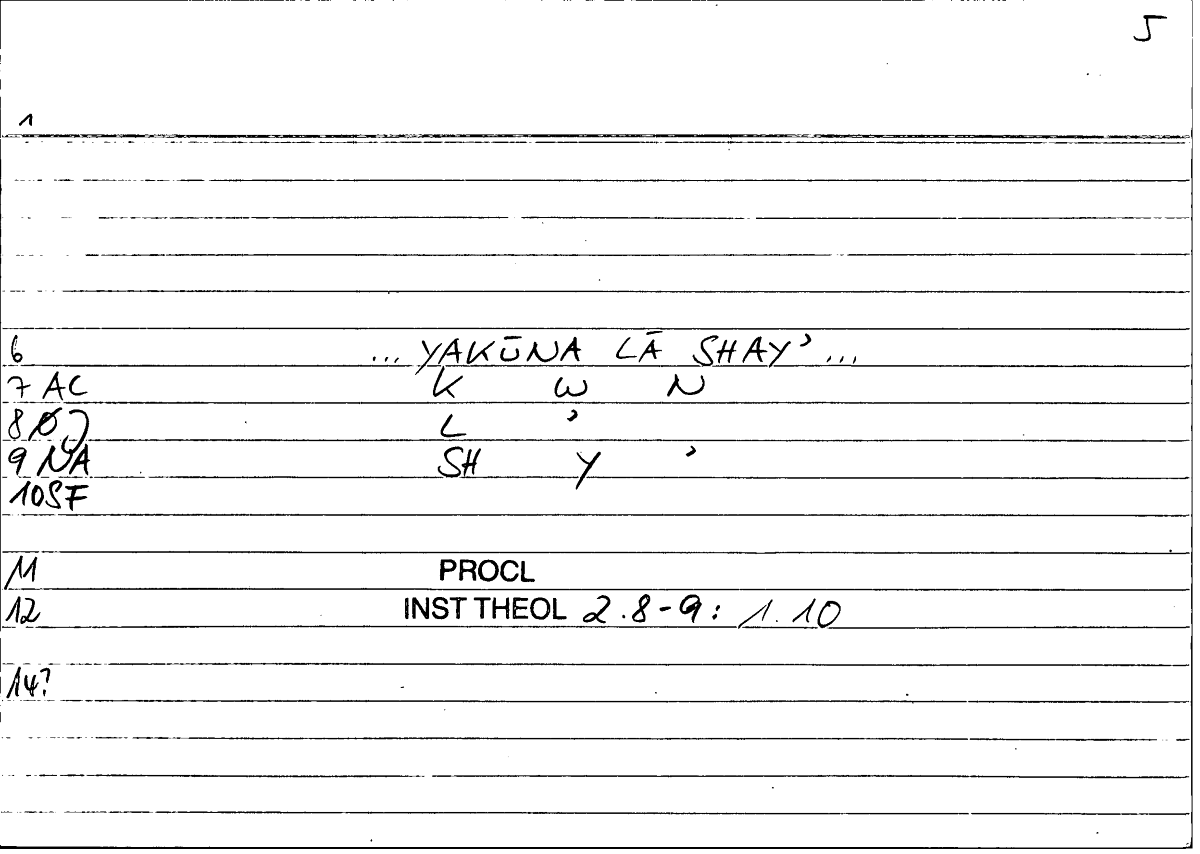 5
1
6 ... YAKŪNA LĀ SHAY' ...
7 AC K W N
8 L '
9 NA SH Y '
10 SF
11 PROCL
12 INST THEOL 2.8-9: 1.10
14?